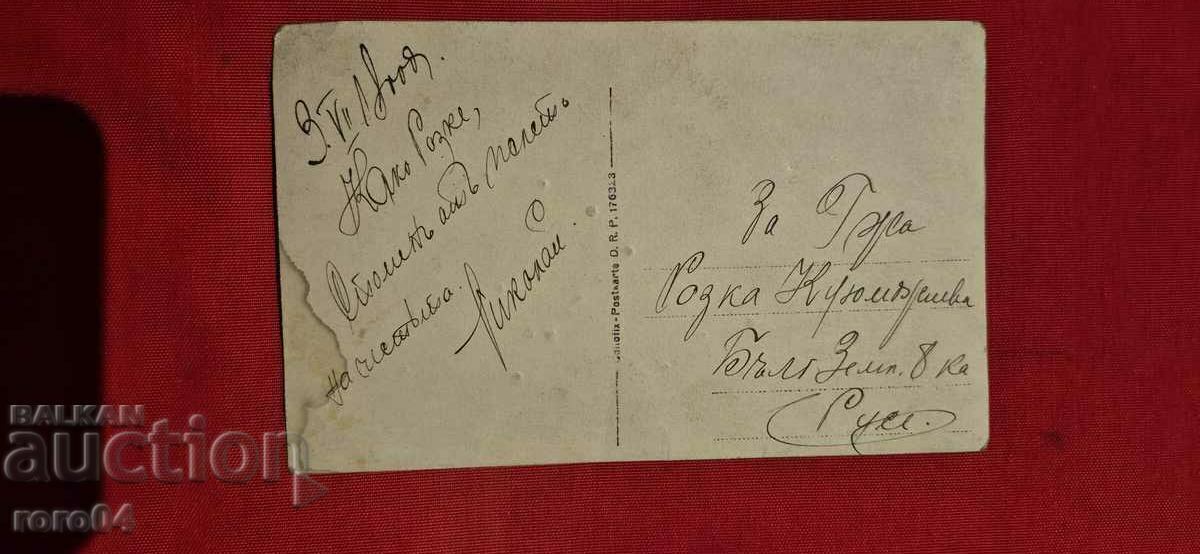 3. VII
Како Розке,
Споменъ отъ полетъ
на чистота.
Николай.
Sanofix-Postkarte D. R. P. 176323
За Г-жа
Розка Куюмджиева
Бълг. Земл. Б-ка
Русе.
BALKAN
auction
roro04